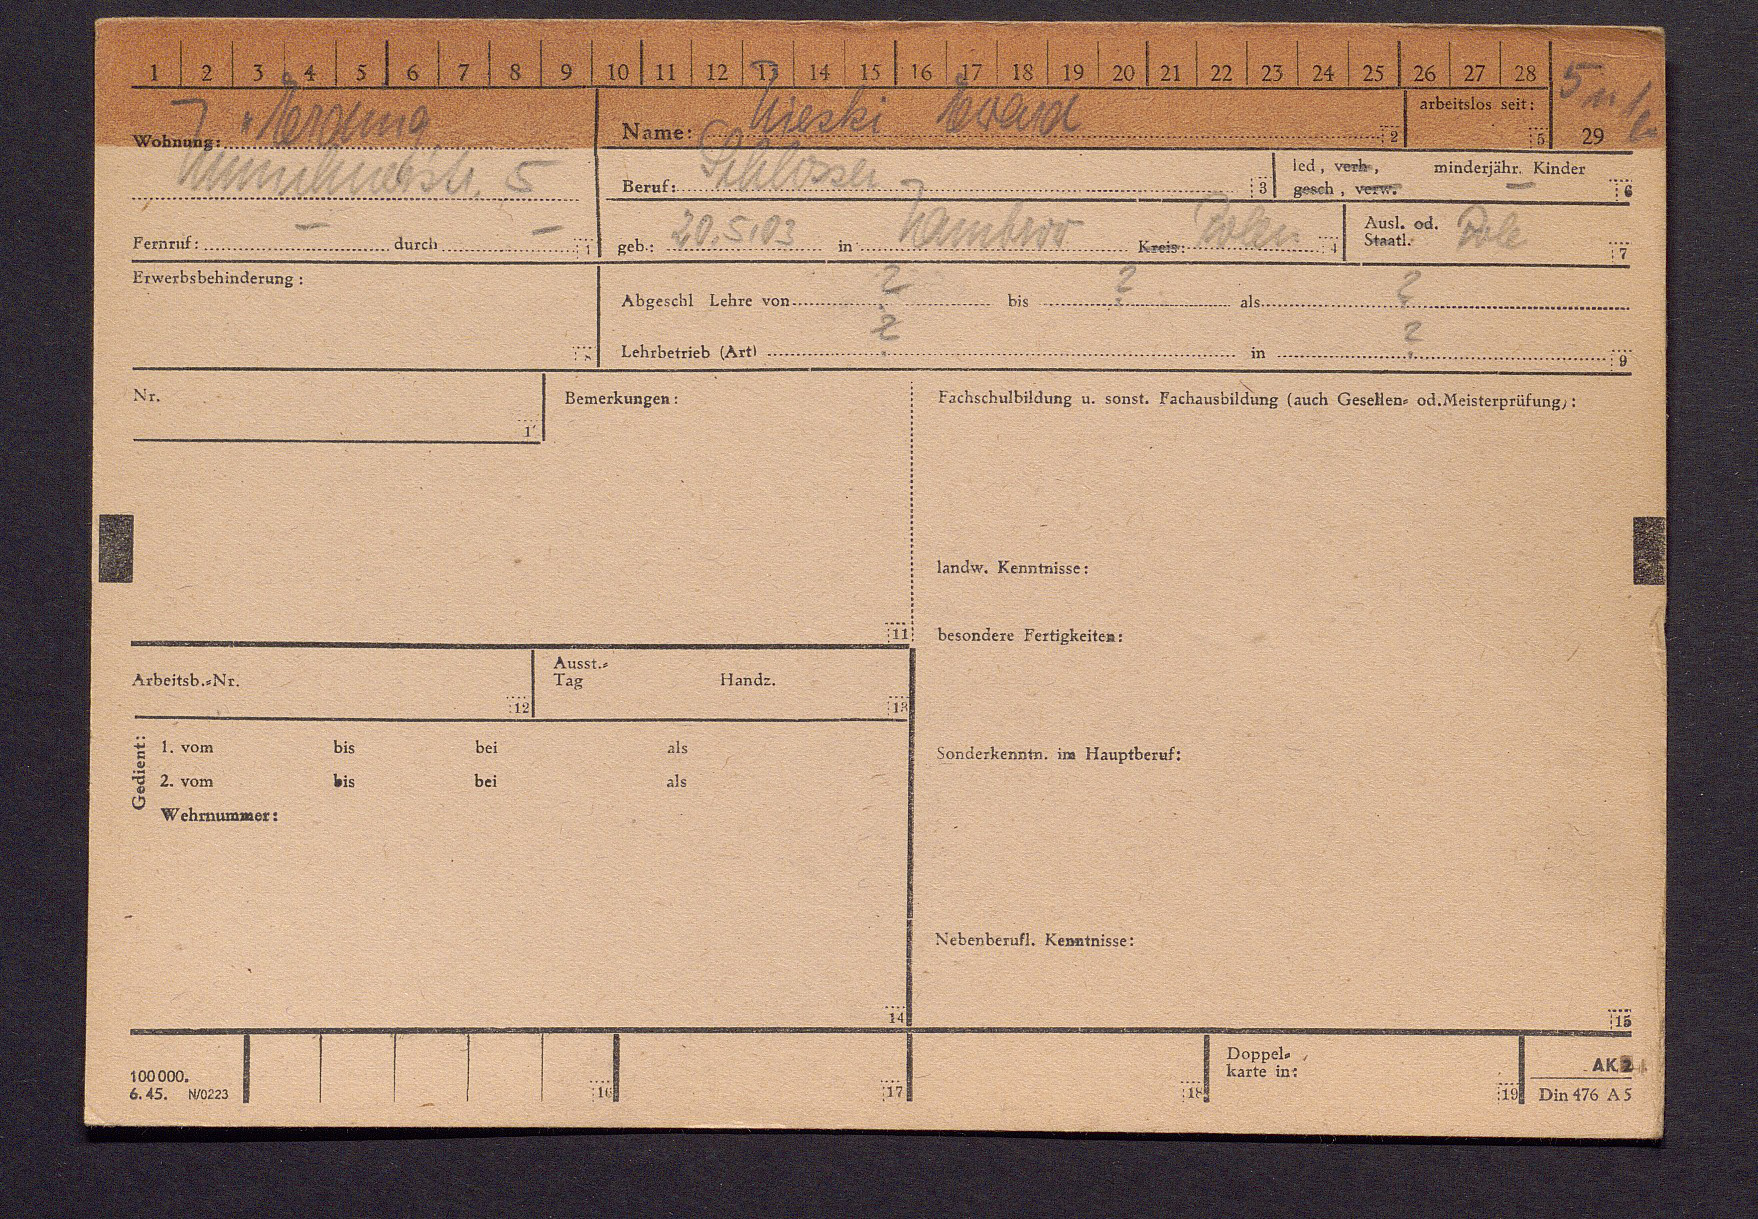 1 2 3 4 5 6 7 8 9 10 11 12 13 14 15 16 17 18 19 20 21 22 23 24 25 26 27 28
Wohnung:
5
Name: Nieski
2
arbeitslos seit:
5
29
Beruf: Schlosser
3
led, verh,
gesch, verw.
minderjähr. Kinder
–
6
Fernruf: – durch –
1
geb.: 20.5.03 in Kreis: Polen
4
Ausl. od.
Staatl. Pole
7
Erwerbsbehinderung:
8
Abgeschl Lehre von ? bis ? als ?
Lehrbetrieb (Art) ? in ?
9
Nr.
1
Bemerkungen:
11
Fachschulbildung u. sonst. Fachausbildung (auch Gesellen- od. Meisterprüfung):
landw. Kenntnisse:
besondere Fertigkeiten:
Arbeitsb.-Nr.
12
Ausst.-
Tag Handz.
13
Gedient:
1. vom bis bei als
2. vom bis bei als
Wehrnummer:
14
Sonderkenntn. im Hauptberuf:
Nebenberufl. Kenntnisse:
15
100 000.
6. 45. N/0223
16
17
18
Doppel-
karte in:
19
AK 2
Din 476 A 5